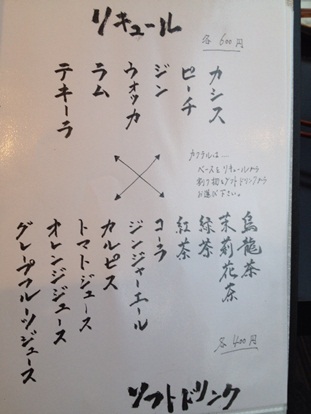 リキュール
各600円
カシス
ピーチ
ジン
ウォッカ
ラム
テキーラ
カクテルは…
ベースをリキュールから
割り物をソフトドリンクから
お選び下さい。
烏龍茶
茉莉花茶
緑茶
紅茶
コーラ
ジンジャーエール
カルピス
トマトジュース
オレンジジュース
グレープフルーツジュース
各400円
ソフトドリンク